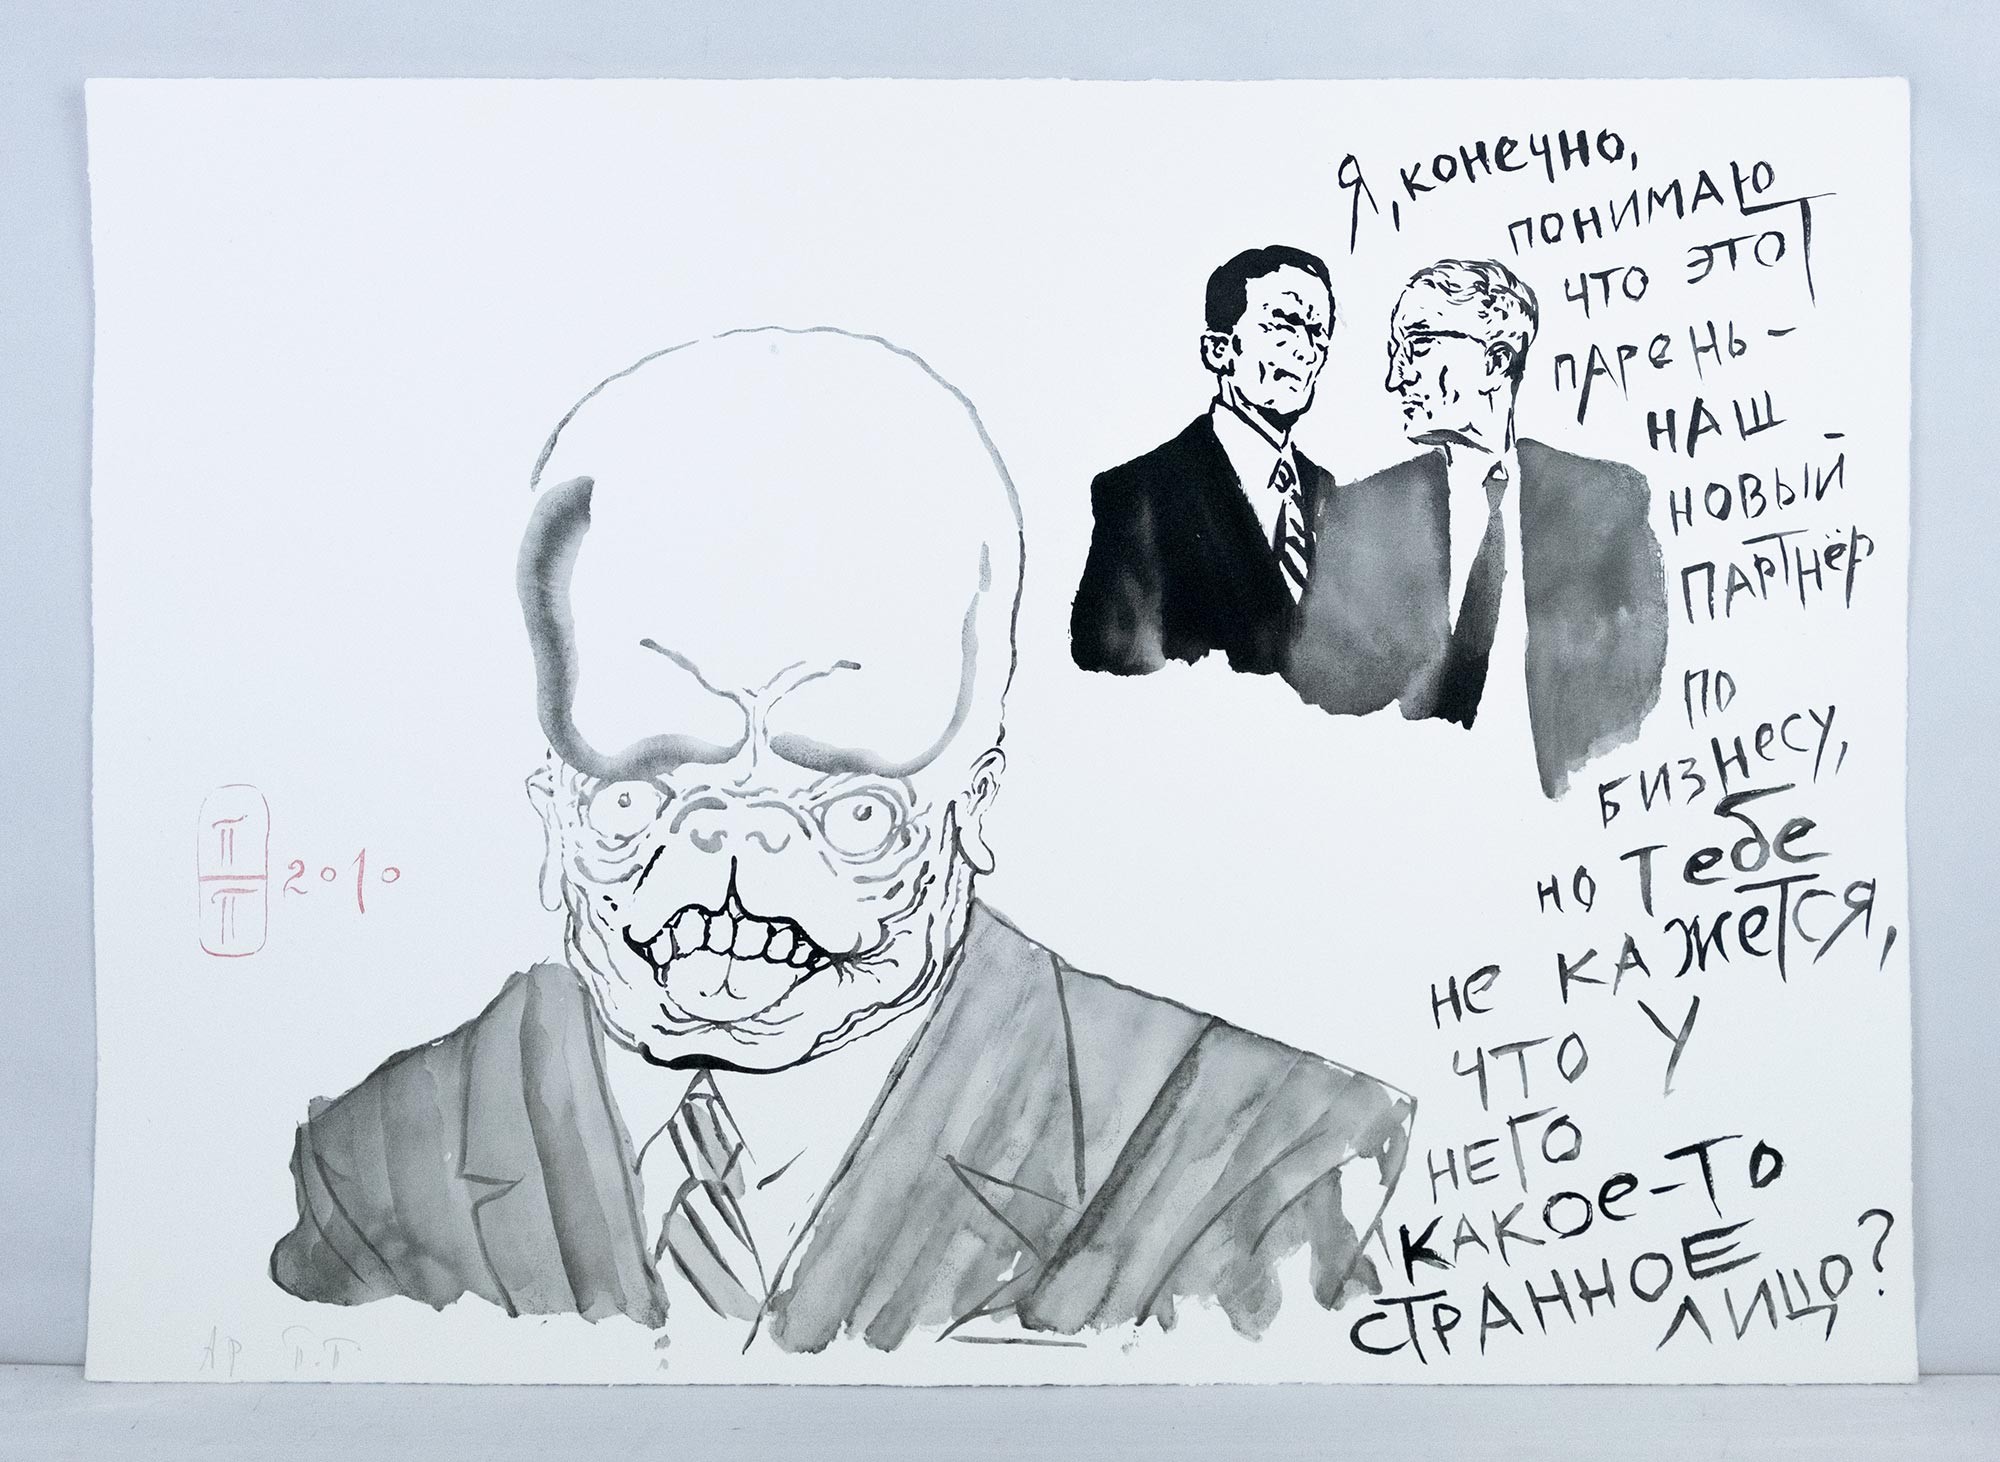 Я, конечно,
понимаю
что этот
парень-
наш
новый
партнёр
по
бизнесу,
но тебе
не кажется,
что у
него
какое-то
странное
лицо?
П
П
2010
АР П.П